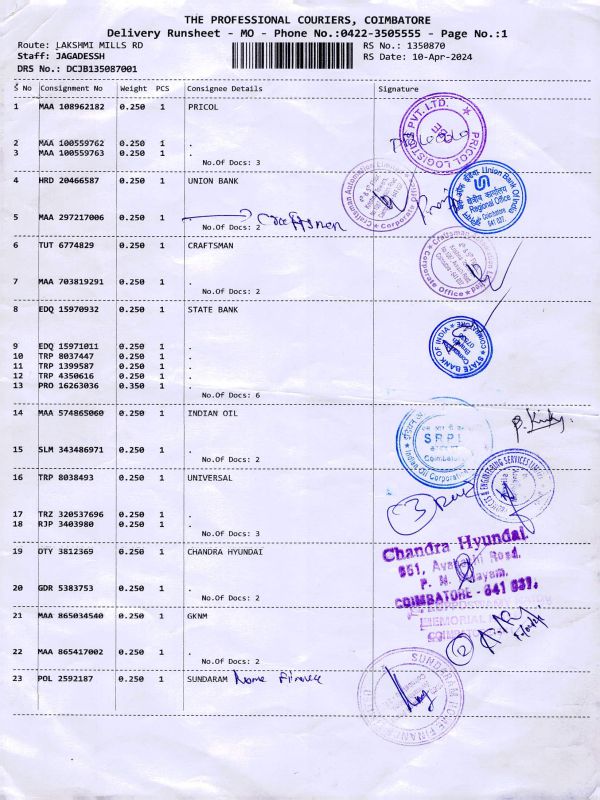 THE PROFESSIONAL COURIERS, COIMBATORE
Delivery Runsheet - MO - Phone No.:0422-3505555 - Page No.:1
Route: LAKSHMI MILLS RD RS No.: 1350870
Staff: JAGADESSH RS Date: 10-Apr-2024
DRS No.: DCJB135087001
S No Consignment No Weight PCS Consignee Details Signature
1 MAA 108962182 0.250 1 PRICOL
PRICOL LOGISTICS PVT. LTD.
2 MAA 100559762 0.250 1 .
3 MAA 100559763 0.250 1 .
No.Of Docs: 3
4 HRD 20466587 0.250 1 UNION BANK
Union Bank Of India
Regional Office
Coimbatore
641 037.
5 MAA 297217006 0.250 1 . Craftsmen
No.Of Docs: 2
6 TUT 6774829 0.250 1 CRAFTSMAN
Corporate Office
7 MAA 703819291 0.250 1 .
No.Of Docs: 2
8 EDQ 15970932 0.250 1 STATE BANK
STATE BANK OF INDIA
COIMBATORE
9 EDQ 15971011 0.250 1 .
10 TRP 8037447 0.250 1 .
11 TRP 1399587 0.250 1 .
12 TRP 4350616 0.250 1 .
13 PRO 16263036 0.350 1 .
No.Of Docs: 6
14 MAA 574865060 0.250 1 INDIAN OIL
SRPL
Coimbatore
Indian Oil Corporation
15 SLM 343486971 0.250 1 .
No.Of Docs: 2
16 TRP 8038493 0.250 1 UNIVERSAL
ENGINEERING SERVICES
17 TRZ 320537696 0.250 1 .
18 RJP 3403980 0.250 1 .
No.Of Docs: 3
3
19 OTY 3812369 0.250 1 CHANDRA HYUNDAI
Chandra Hyundai
Road.
COIMBATORE - 641 037.
20 GDR 5383753 0.250 1 .
No.Of Docs: 2
21 MAA 865034540 0.250 1 GKNM
MEMORIAL
2
22 MAA 865417002 0.250 1 .
No.Of Docs: 2
23 POL 2592187 0.250 1 SUNDARAM Home Finance
SUNDARAM HOME FINANCE